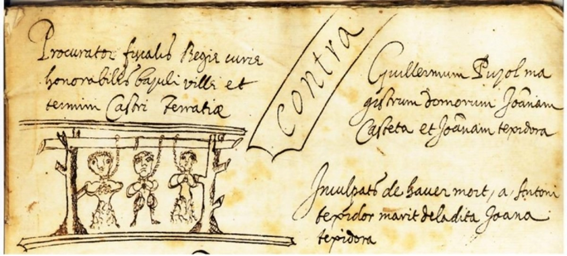 Procurator fiscalis Regie curie
honorabilis bajuli ville et
termini Castri Terratiæ
contra
Guillermum Pujol ma
gistrum domorum Joannam
Casteta et Joannam texidora
Inculpats de haver mort, a, Antoni
texidor marit de la dita Joana
texidora